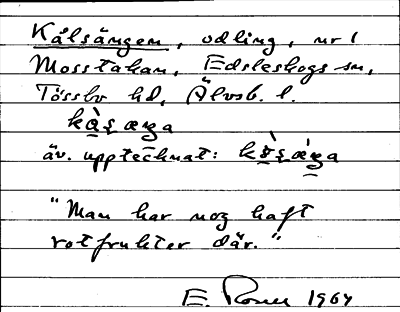 Kålsängen, odling, nr 1
Mosstakan, Edsleskogs sn,
Tössbo hd, Älvsb. l.
äv. upptecknat:
"Man har nog haft
rotfrukter där."
E. 1964